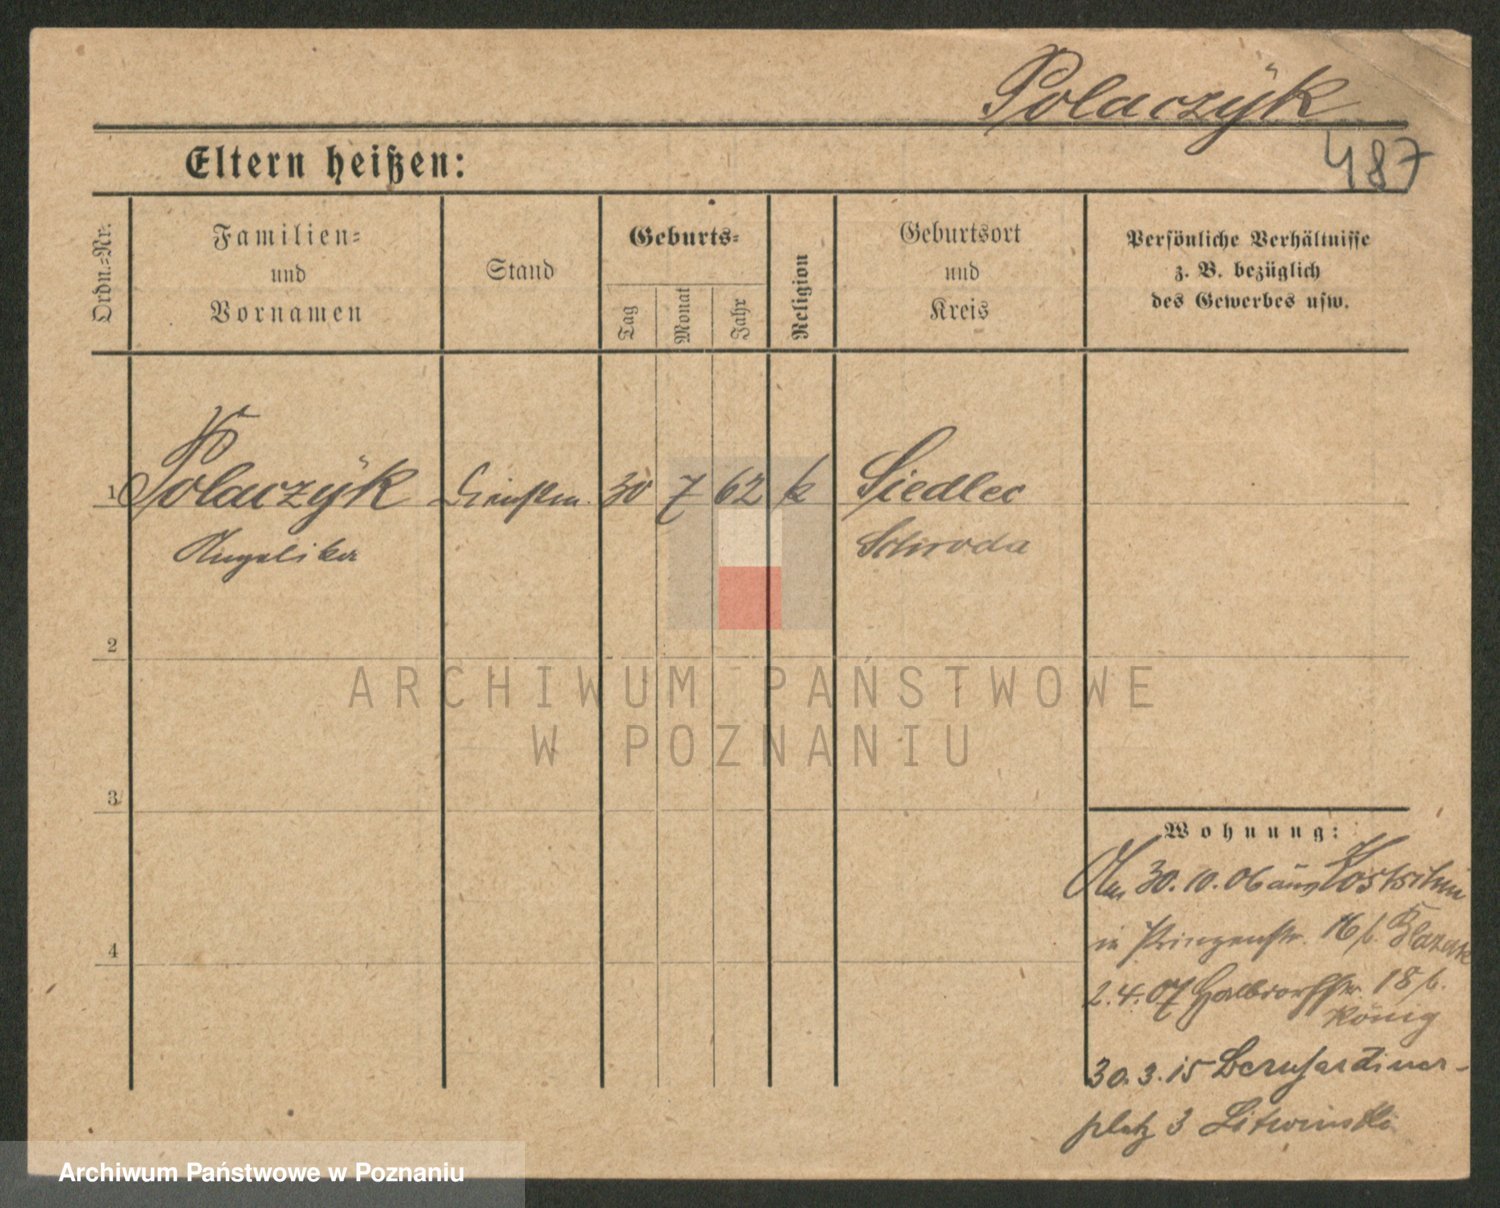 Polaczÿk
487
Eltern heißen:
Ordn.-Nr.
Familien-
und
Vornamen
Stand
Geburts-
Tag
Monat
Jahr
Religion
Geburtsort
und
Kreis
Persönliche Verhältnisse
z. B. bezüglich
des Gewerbes usw.
1 Polaczÿk Dienstm. 30 7 62 k Siedlec
Angelika Schroda
2
ARCHIWUM PAŃSTWOWE
W POZNANIU
3
4
Wohnung:
30.10.06 aus
in Prinzenstr. 16
2.4.07 Halbdorfstr. 18
König
30.3.15 Bernhardiner-
platz 3 Litwinski
Archiwum Państwowe w Poznaniu